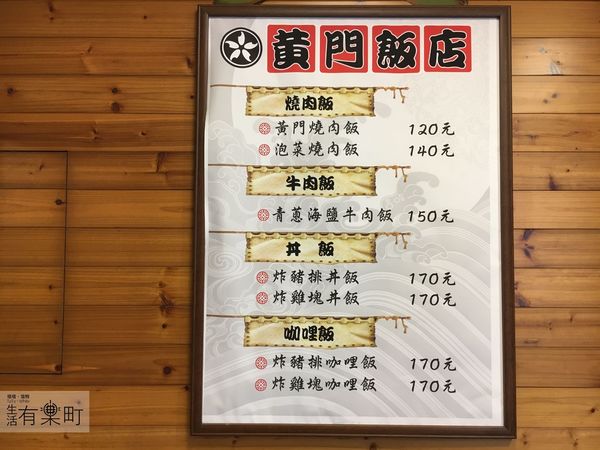 黃門飯店
燒肉飯
黃門燒肉飯 120元
泡菜燒肉飯 140元
牛肉飯
青蔥海鹽牛肉飯 150元
丼 飯
炸豬排丼飯 170元
炸雞塊丼飯 170元
咖哩飯
炸豬排咖哩飯 170元
炸雞塊咖哩飯 170元
生活有樂町